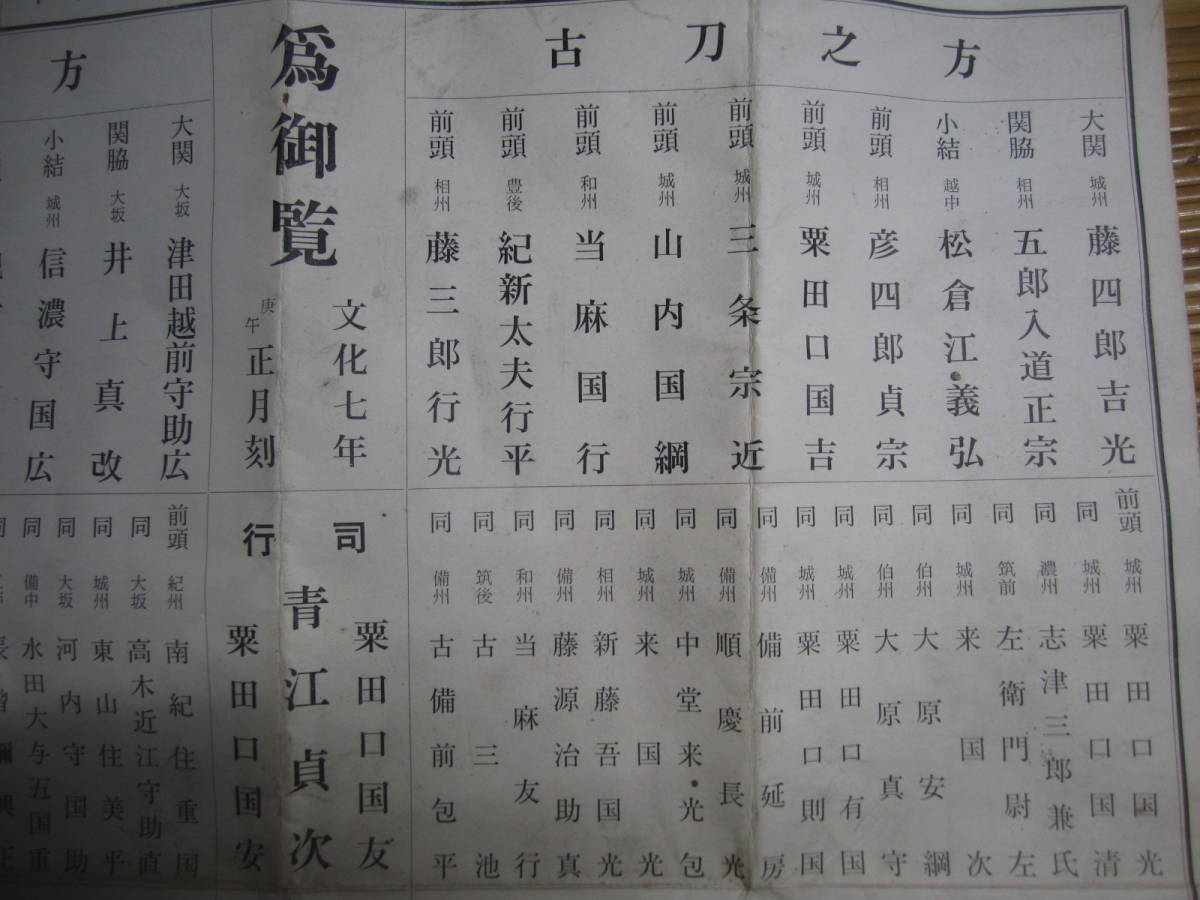 古刀之方
大関 城州 藤四郎吉光
関脇 相州 五郎入道正宗
小結 越中 松倉江・義弘
前頭 相州 彦四郎貞宗
前頭 城州 粟田口国吉
前頭 城州 三条宗近
前頭 城州 山内国綱
前頭 和州 当麻国行
前頭 豊後 紀新太夫行平
前頭 相州 藤三郎行光
前頭 城州 粟田口国光
同 城州 粟田口国清
同 濃州 志津三郎兼氏
同 筑前 左衛門尉左
同 城州 来国次
同 伯州 大原安綱
同 伯州 大原真守
同 城州 粟田口有国
同 城州 粟田口則国
同 備州 備前延房
同 備州 順慶長光
同 城州 中堂来・光包
同 城州 来国光
同 相州 新藤吾国光
同 備州 藤源治助真
同 和州 当麻友行
同 筑後 古三池
同 備州 古備前包平
為御覧
文化七年
庚午 正月刻
行司
粟田口国友
青江貞次
粟田口国安
方
大関 大坂 津田越前守助広
関脇 大坂 井上真改
小結 城州 信濃守国広
前頭 紀州 南紀住重国
同 大坂 高木近江守助直
同 城州 東山住美平
同 大坂 河内守国助
同 備中 水田大与五国重
同